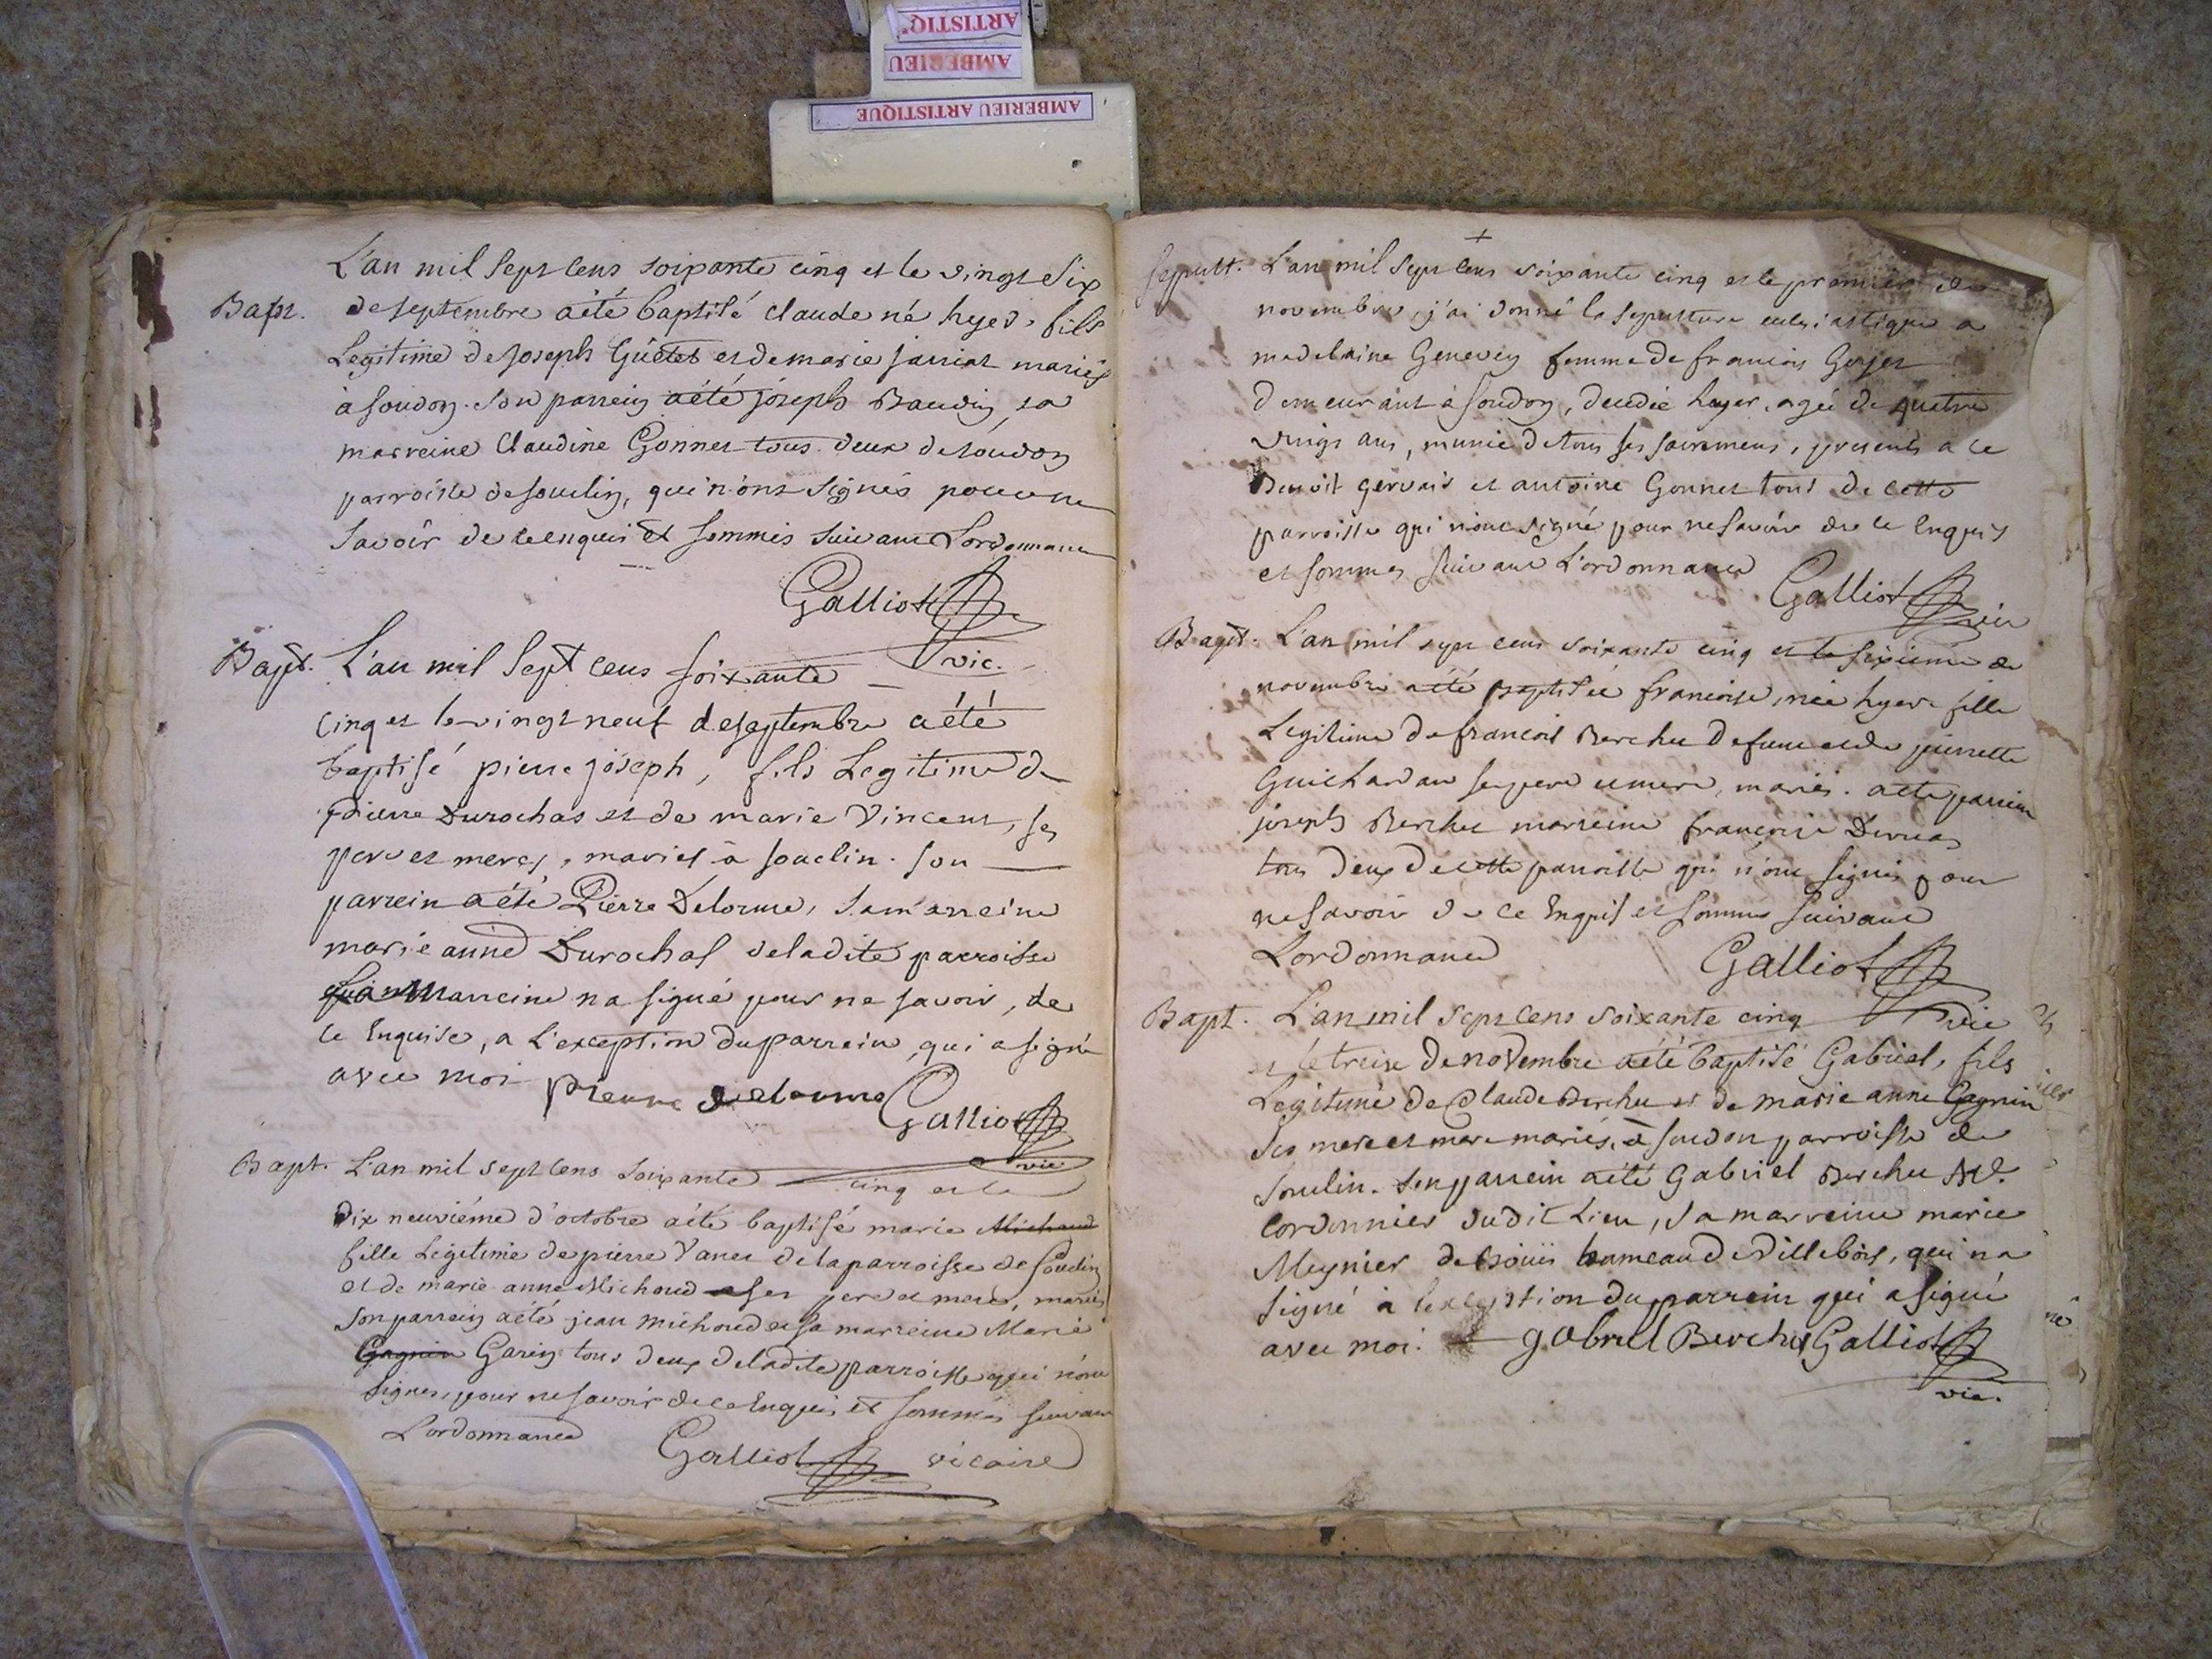 ARTISTIQ
AMBERIEU
AMBERIEU ARTISTIQUE
L'an mil sept cens soixante cinq et le vingt six
Bapt. de septembre a été baptisé claude né hyer, fils
Legitime de joseph Guétet et de marie jarriat mariés
à soudon. son parrein a été joseph Baudin, sa
marreine Claudine Gonnet tous deux de soudon
parroisse de souclin, qui n'ont signés pour ne
savoir de ce enquis et sommés suivant L'ordonnance
Galliot
vic.
Bapt. L'an mil sept cens soixante
cinq et le vingt neuf de septembre a été
baptisé pierre joseph, fils Legitime de
pierre Durochas et de marie Vincent, ses
pere et mere, mariés à souclin. son
parrein a été Pierre Delorme, sa marreine
marie anne Durochas de ladite parroisse
marreine na signé pour ne savoir, de
ce Enquise, a L'exception du parrein, qui a signé
avec moi pierre delorme Galliot
vic
Bapt. L'an mil sept cens soixante cinq et le
Dix neuviéme d'octobre a été baptisé marie Michoud
fille Legitime de pierre Vanet de la parroisse de souclin
et de marie anne Michoud ses pere et mere, mariés
son parrein a été jean michoud et sa marreine Marie
Gagnin Garin tous deux de ladite parroisse qui n'ont
signés, pour ne savoir de ce Enquis et sommés suivant
L'ordonnance
Galliot vicaire
+
sepult. L'an mil sept cens soixante cinq et le premier de
novembre, j'ai donné la sepulture eclesiastique a
madelaine Genevey femme de francois Gojet
demeurant à soudon, decedée hyer, agée de quatre
vingt ans, munie de tous ses sacremens, presents a ce
Benoit gervais et antoine Gonnet tous de cette
parroisse qui n'ont signé pour ne savoir de ce Enquis
et sommés suivant L'ordonnance Galliot
vic
Bapt. L'an mil sept cens soixante cinq et le sixieme de
novembre a été baptisée francoise, née hyer fille
Legitime de francois Berchu defunt et de pierrette
Guichardan ses pere et mere, mariés. a été parrein
joseph Berchet marreine francoise
tous deux de cette parroisse qui n'ont signés pour
ne savoir de ce Enquis et sommés suivant
L'ordonnance Galliot
vic
Bapt. L'an mil sept cens soixante cinq
et le treise de novembre a été baptisé Gabriel, fils
Legitime de Claude Berchu et de marie anne Gagnin
ses mere et mere mariés, à soudon parroisse de
souclin. son parrein a été Gabriel Berchu
cordonnier dudit Lieu, sa marreine marie
Meynier de Boüis hameau de Villebois, qui na
signé à l'exception du parrein qui a signé
avec moi. gabriel Berchu Galliot
vic.